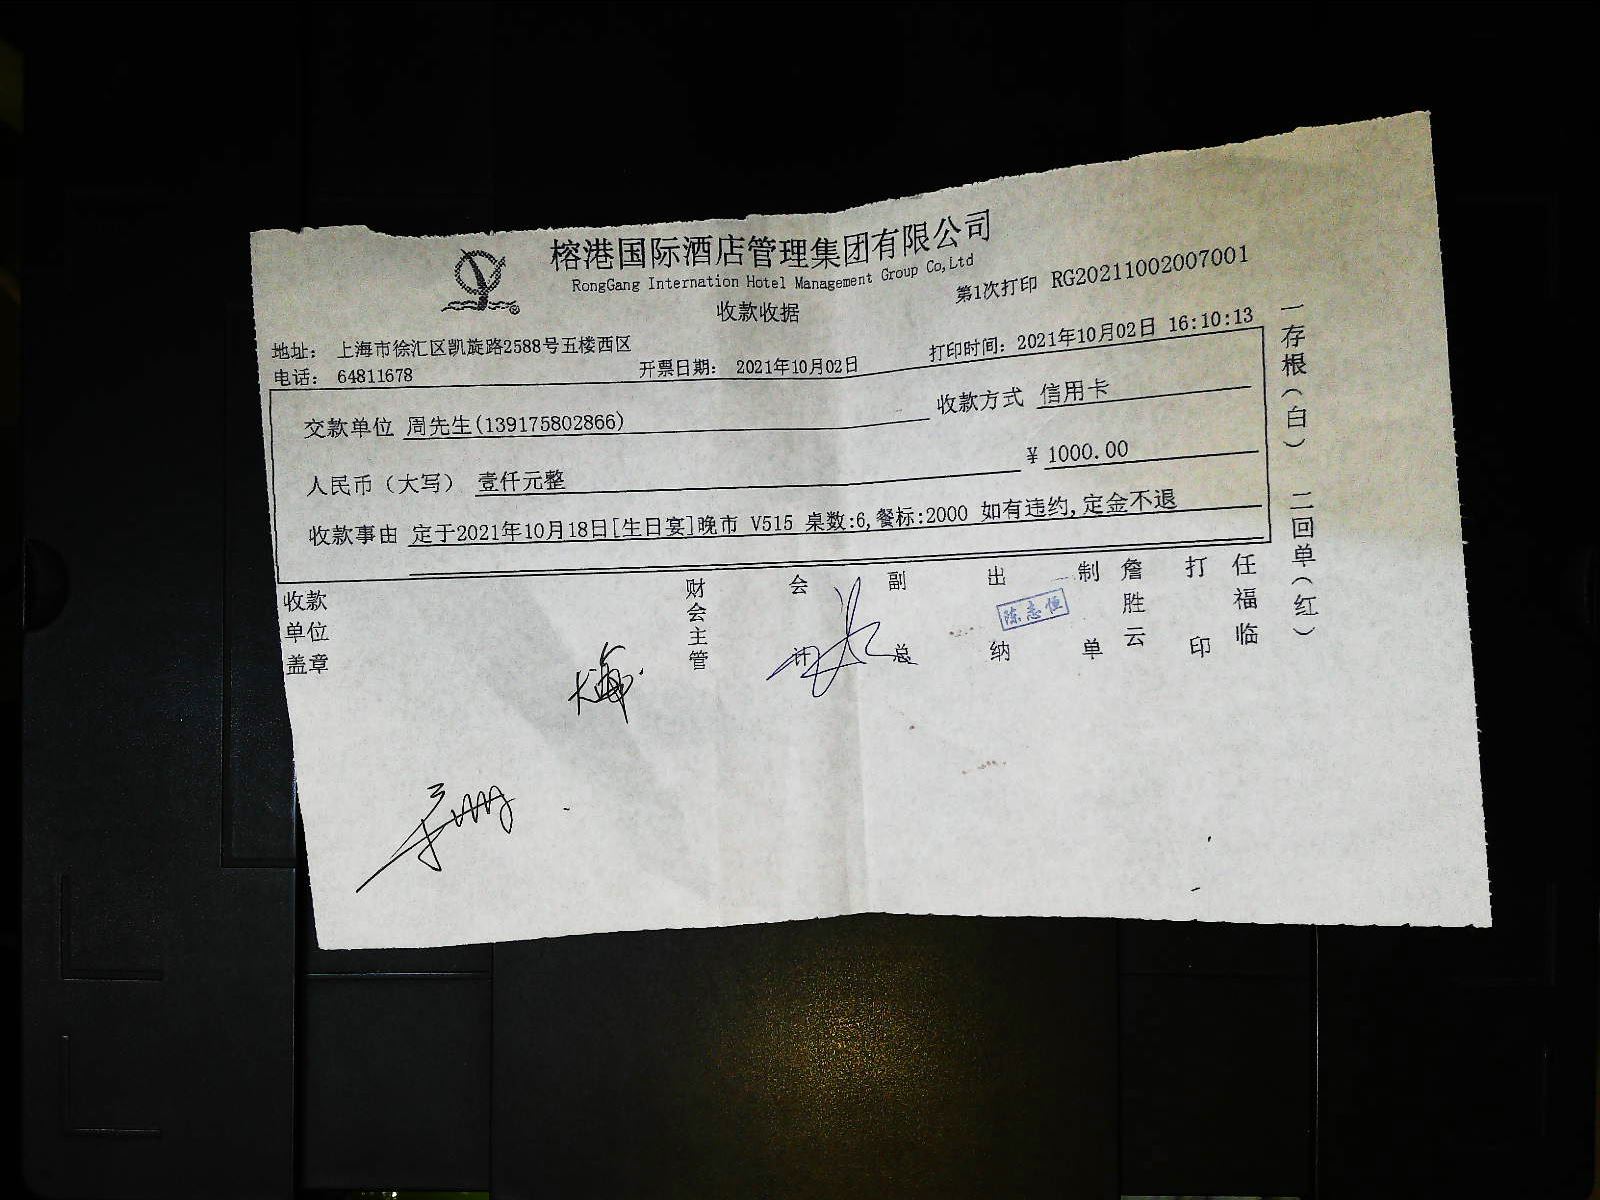 榕港国际酒店管理集团有限公司
RongGang Internation Hotel Management Group Co,Ltd
收款收据
第1次打印 RG20211002007001
地址： 上海市徐汇区凯旋路2588号五楼西区
电话： 64811678
开票日期： 2021年10月02日
打印时间：2021年10月02日 16:10:13
交款单位 周先生(139175802866)
收款方式 信用卡
人民币（大写） 壹仟元整
¥ 1000.00
收款事由 定于2021年10月18日[生日宴]晚市 V515 桌数:6,餐标:2000 如有违约,定金不退
收款单位盖章
财会主管
会计
副总
出纳
陈志恒
制单
詹胜云
打印
任福临
一存根（白）
二回单（红）